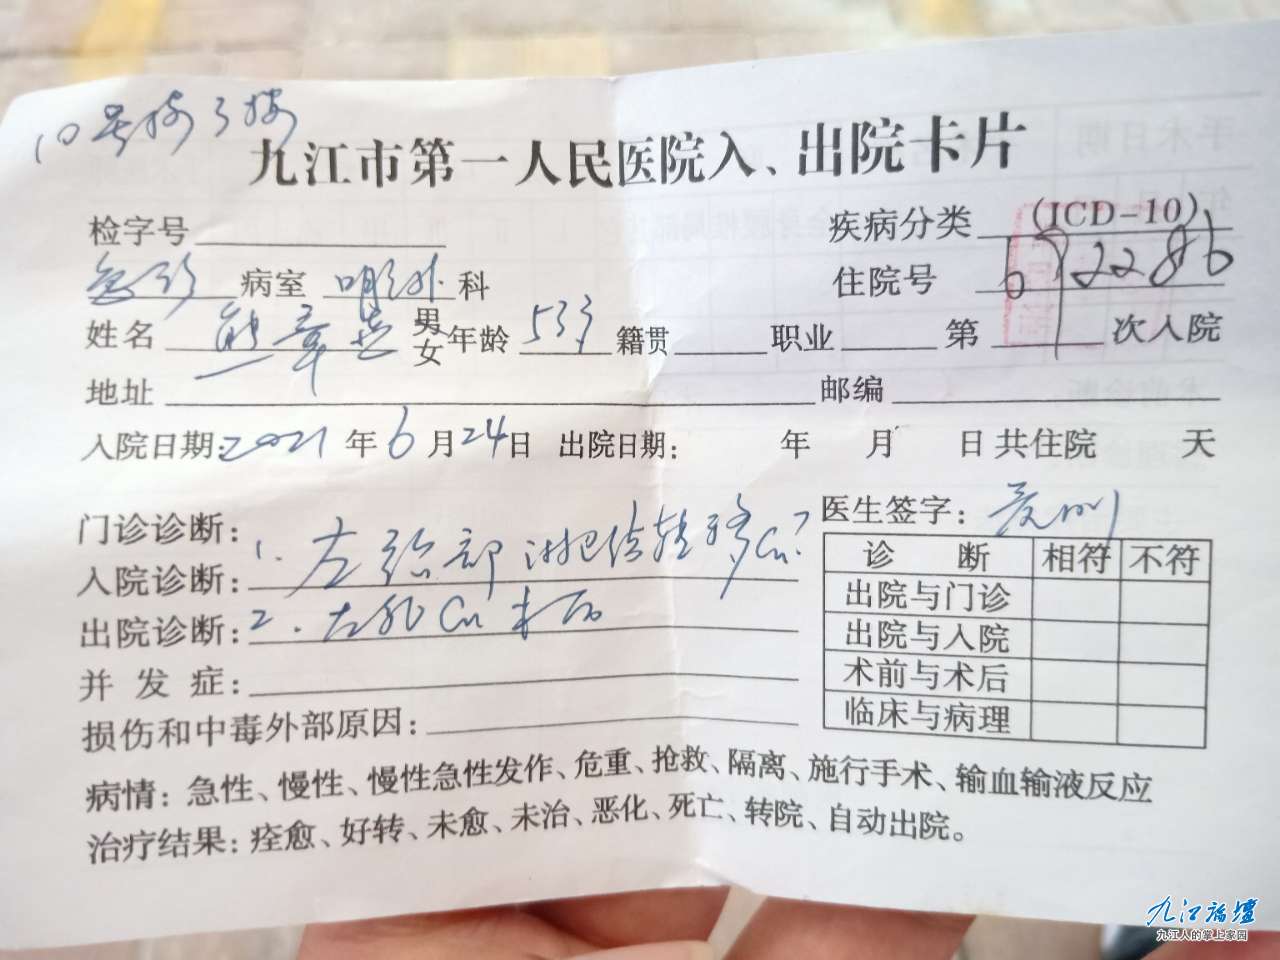 10号楼3楼
九江市第一人民医院入、出院卡片
检字号 疾病分类 (ICD-10)
急诊 病室 胸外 科 住院号 672286
姓名 熊章 男 女 年龄 53岁 籍贯 职业 第 次入院
地址 邮编
入院日期:2021年6月24日 出院日期: 年 月 日 共住院 天
门诊诊断: 医生签字:
入院诊断: 1. 左颈部淋巴结转移Ca?
出院诊断: 2. 左乳Ca术后
并发症:
损伤和中毒外部原因:
诊 断 相符 不符
出院与门诊
出院与入院
术前与术后
临床与病理
病情:急性、慢性、慢性急性发作、危重、抢救、隔离、施行手术、输血输液反应
治疗结果:痊愈、好转、未愈、未治、恶化、死亡、转院、自动出院。
九江论坛
九江人的掌上家园